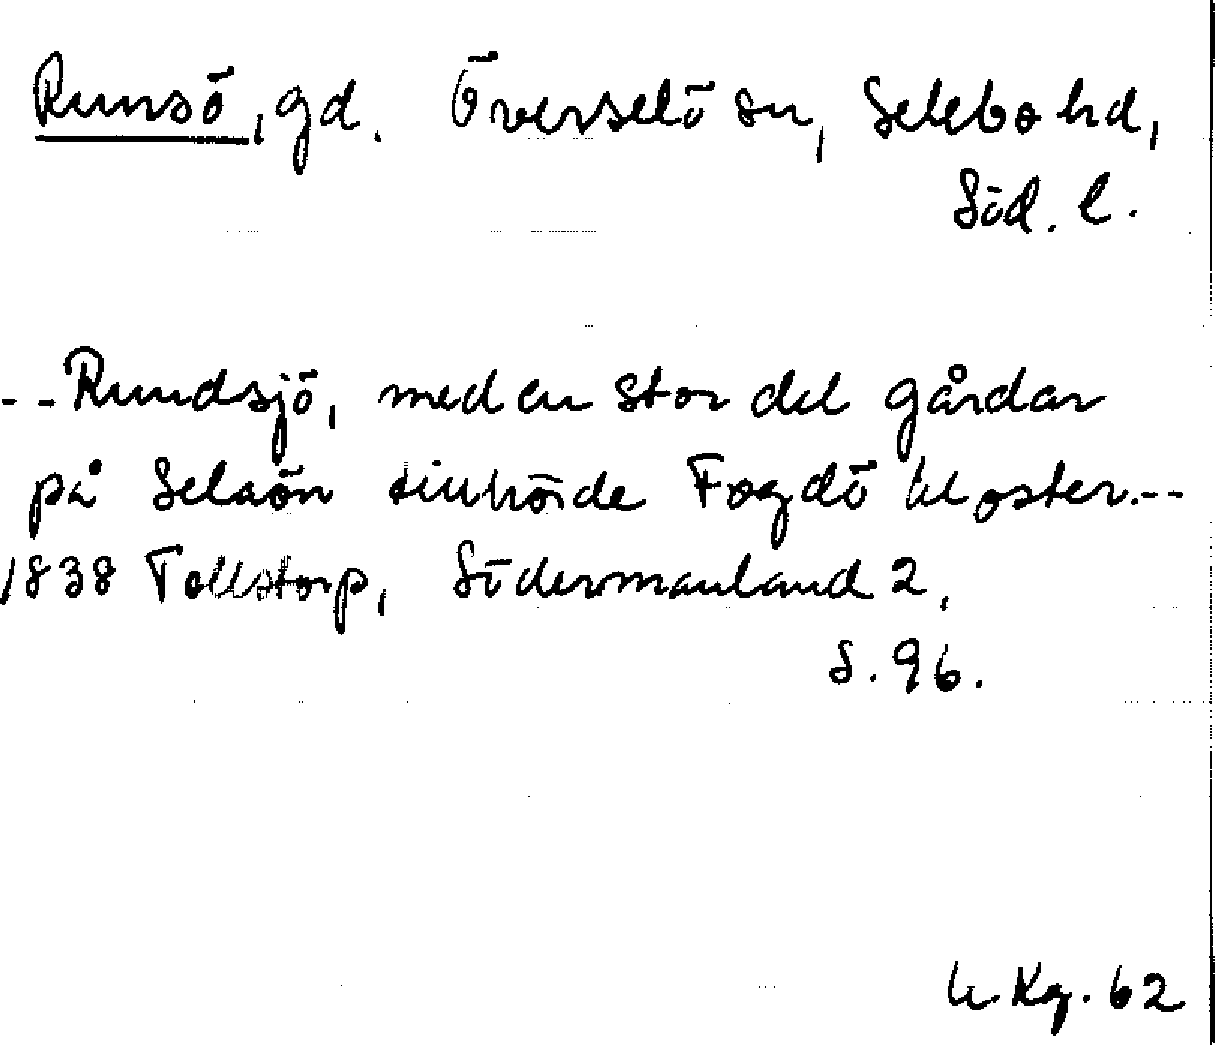 Runsö, gd. Överselö sn, Selebo hd,
Söd. l.
-- Rundsjö, med en stor del gårdar
på Selaön tillhörde Fogdö kloster. --
1838 Tollstorp, Södermanland 2,
S. 96.
Kg. 62